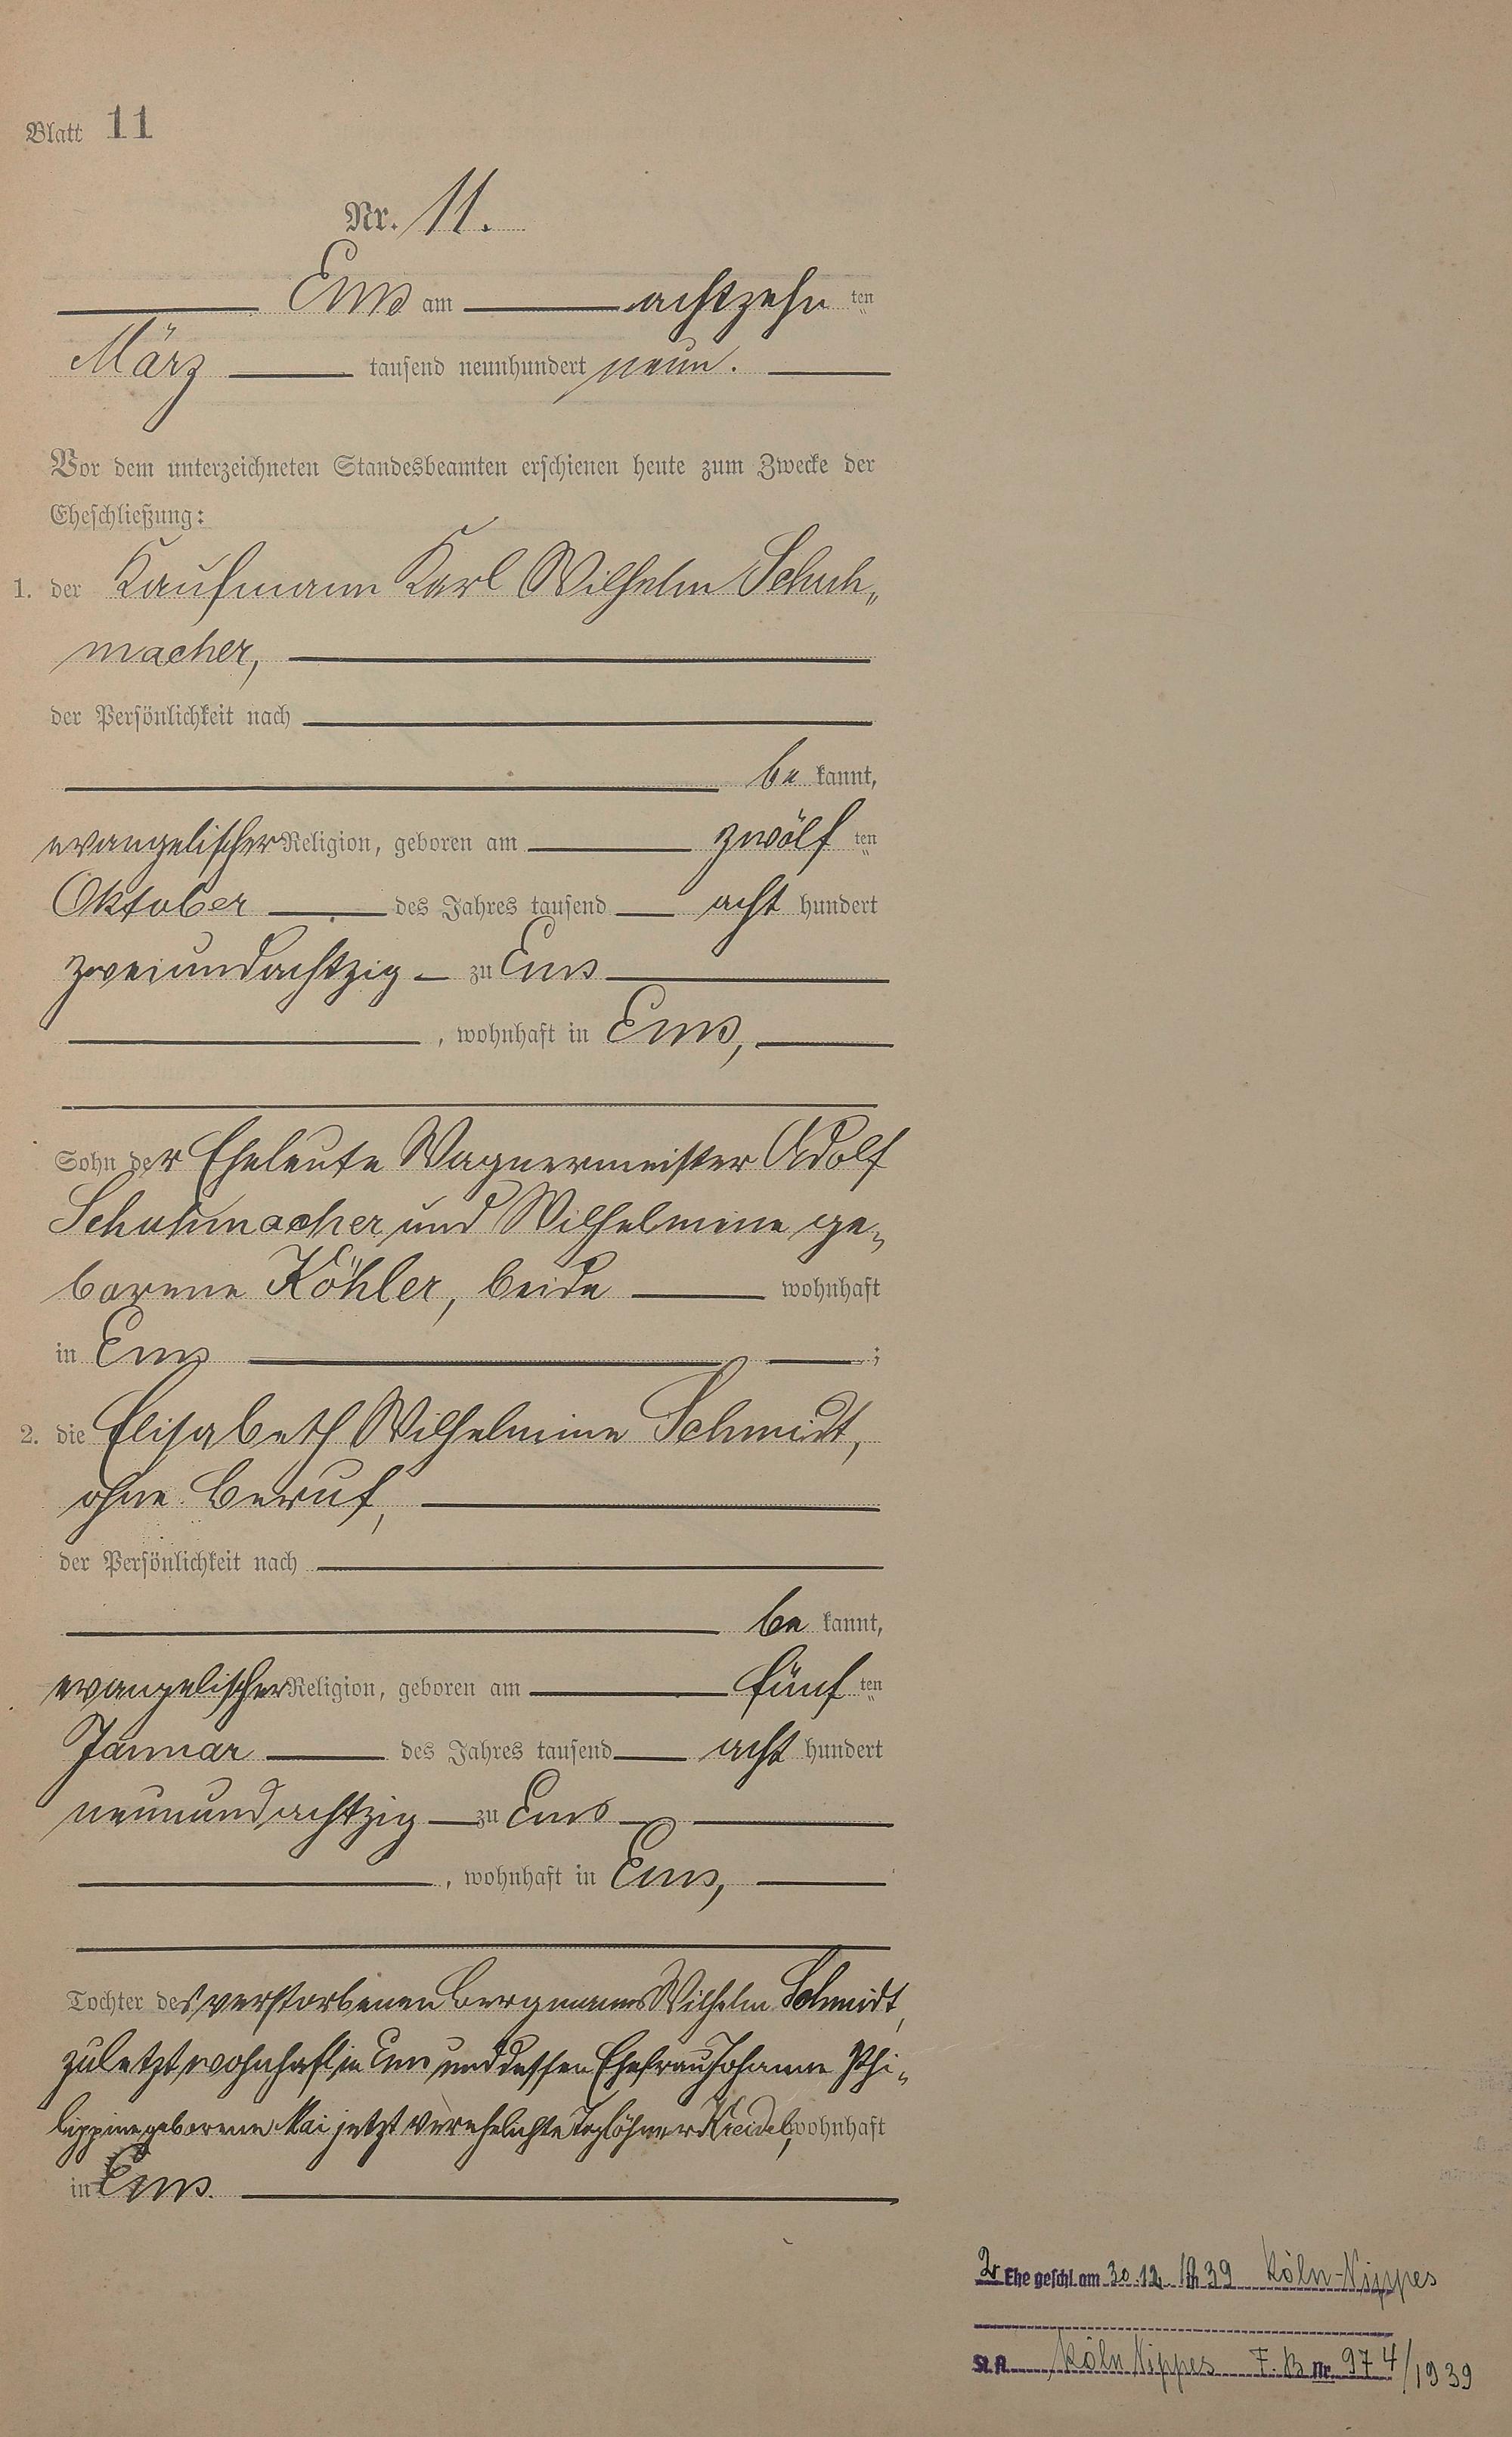 Blatt 11
Nr. 11.
Ems am achtzehn ten
März tausend neunhundert neun.
Vor dem unterzeichneten Standesbeamten erschienen heute zum Zwecke der
Eheschließung:
1. der Kaufmann Karl Wilhelm Schuh„
macher,
der Persönlichkeit nach
be kannt,
evangelischer Religion, geboren am zwölf ten
Oktober des Jahres tausend acht hundert
zweiundachtzig zu Ems
, wohnhaft in Ems,
Sohn der Eheleute Wagnermeister Adolf
Schuhmacher und Wilhelmine ge„
borene Köhler, beide wohnhaft
in Ems ;
2. die Elisabeth Wilhelmine Schmidt,
ohne Beruf,
der Persönlichkeit nach
be kannt,
evangelischer Religion, geboren am fünf ten
Januar des Jahres tausend acht hundert
neunundachtzig zu Ems
, wohnhaft in Ems,
Tochter des verstorbenen Bergmanns Wilhelm Schmidt,
zuletzt wohnhaft in Ems und dessen Ehefrau Johanne Phi„
lippine geborene Mai jetzt verehelichte Taglöhner Kreidel, wohnhaft
in Ems.
2. Ehe geschl. am 30.12. 1939 Köln-Nippes
St. A. Köln Nippes F. B Nr. 974/1939